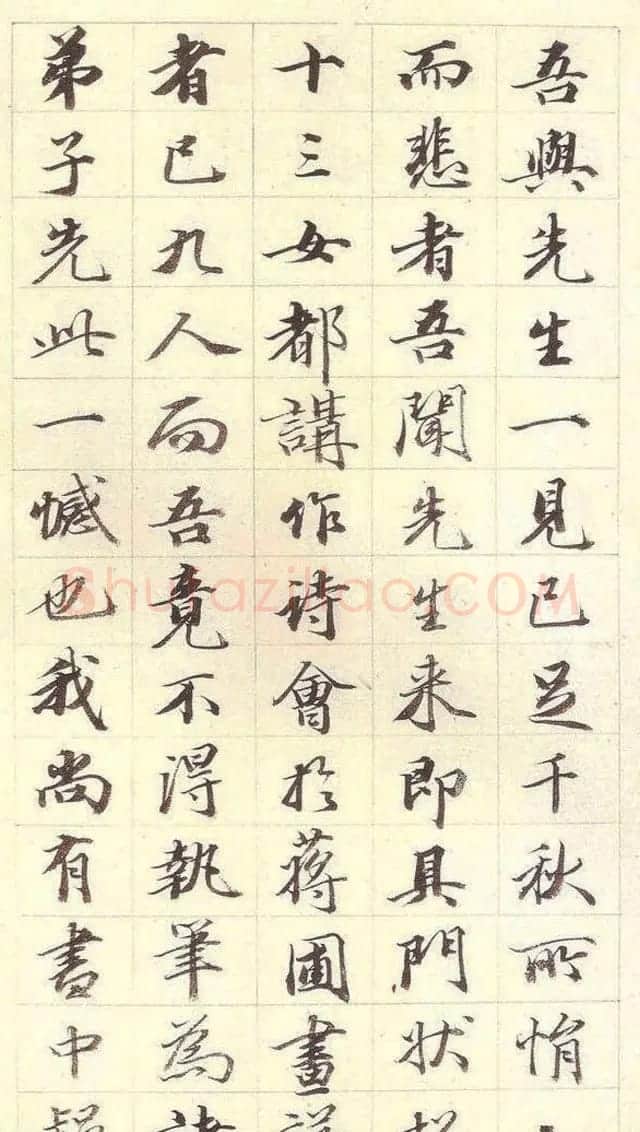 吾與先生一見已足千秋所悁
而悲者吾聞先生来即具門狀
十三女都講作詩會於蔣圃畫
者已九人而吾竟不得執筆為
弟子先此一憾也我尚有畫中
Shufaziliao.COM